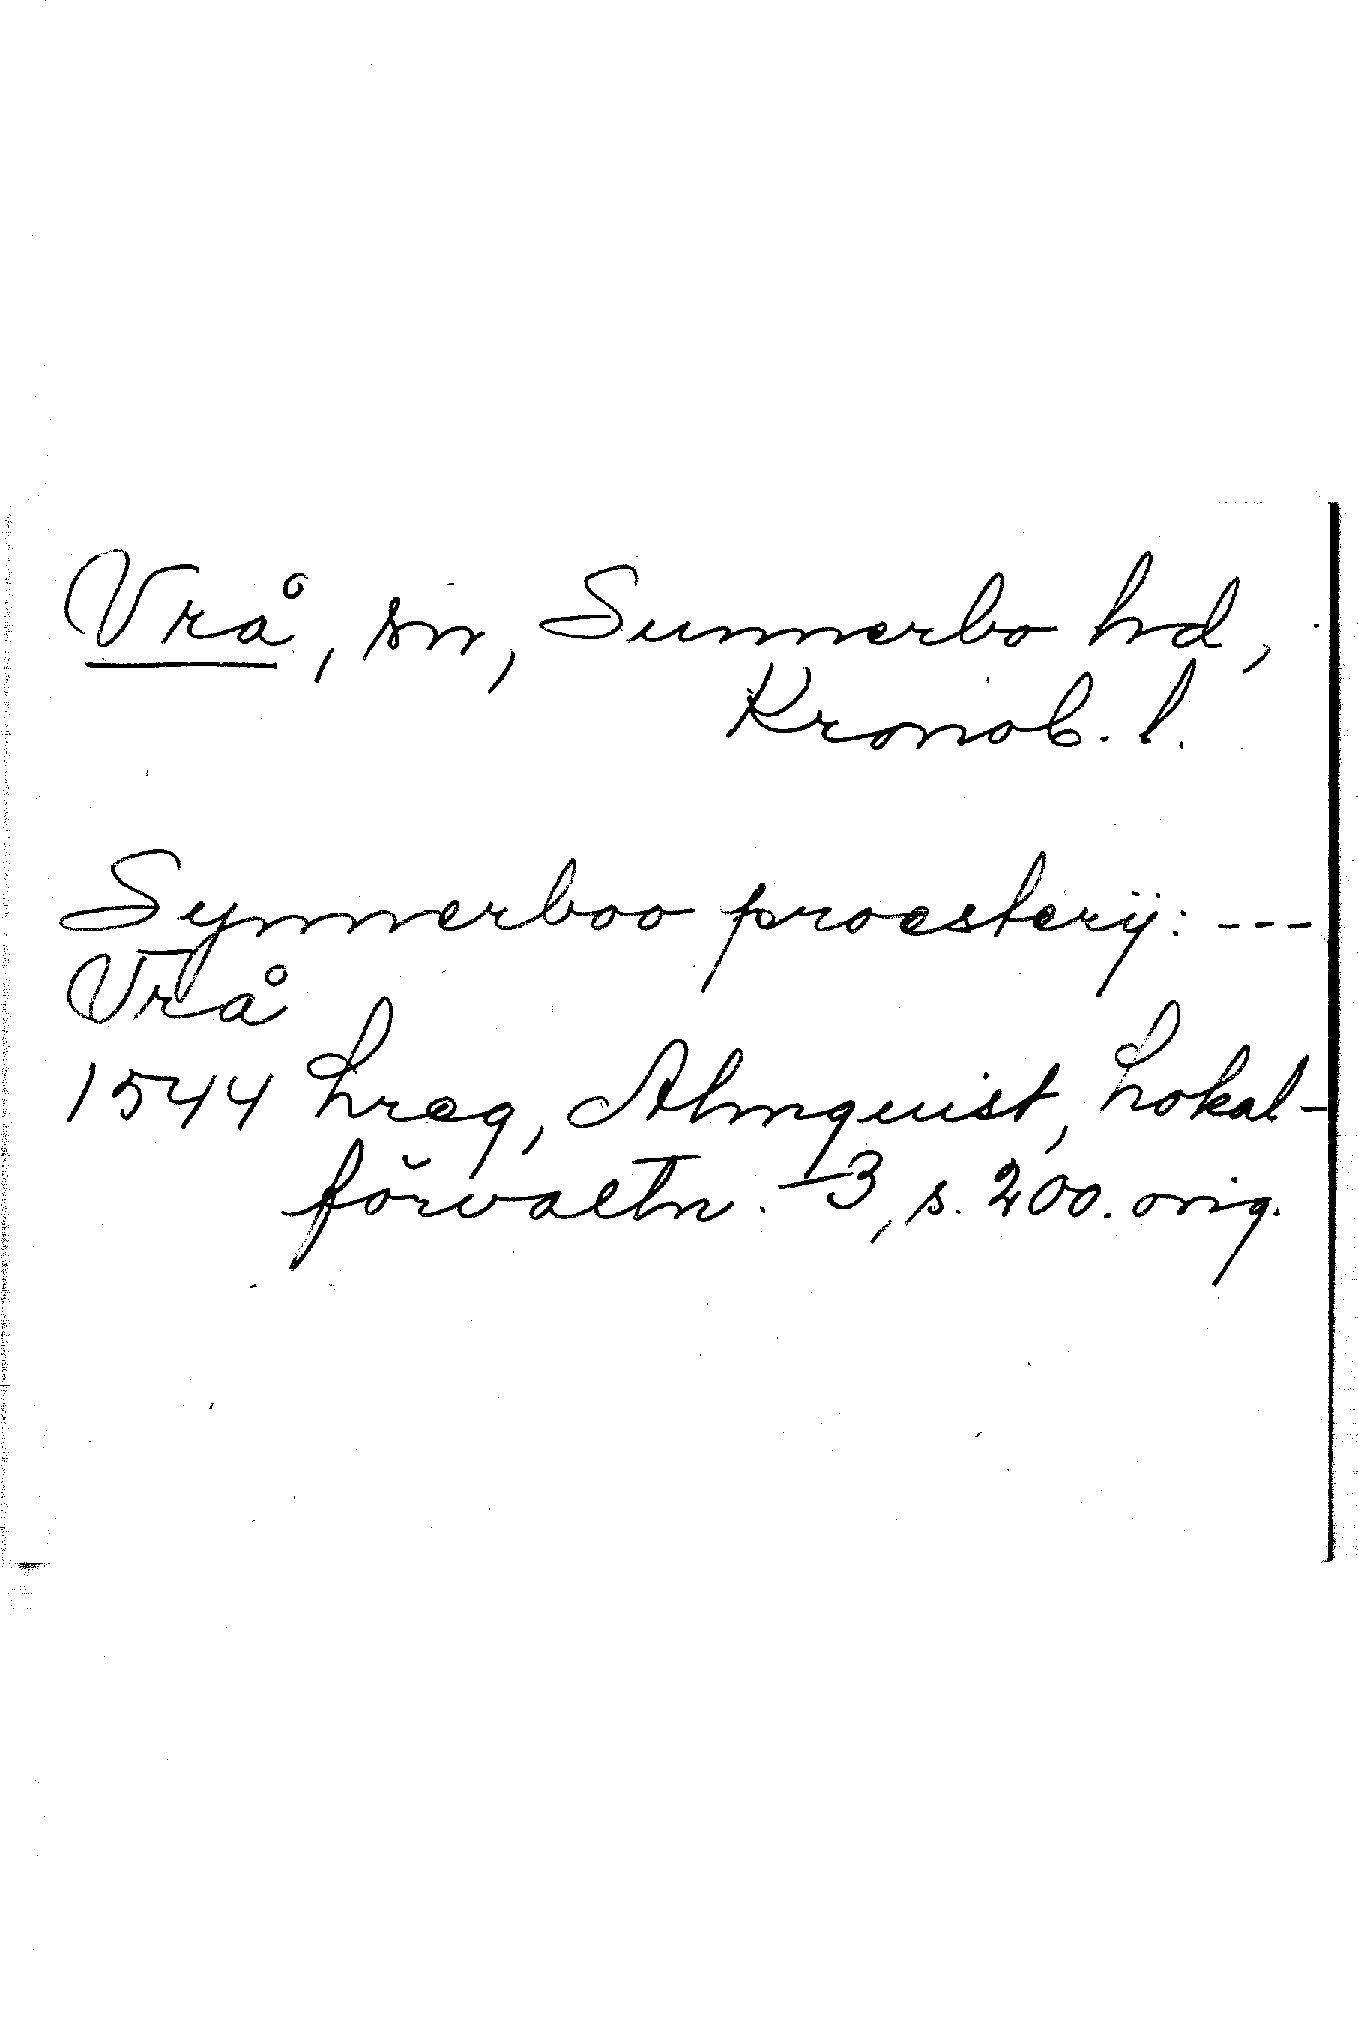 Vrå, sn, Sunnerbo hd,
Kronob. l.
Synnerboo proesterij: ---
Vrå
1544 Lreg, Almquist, Lokal-
förvaltn. 3, s. 200. orig.